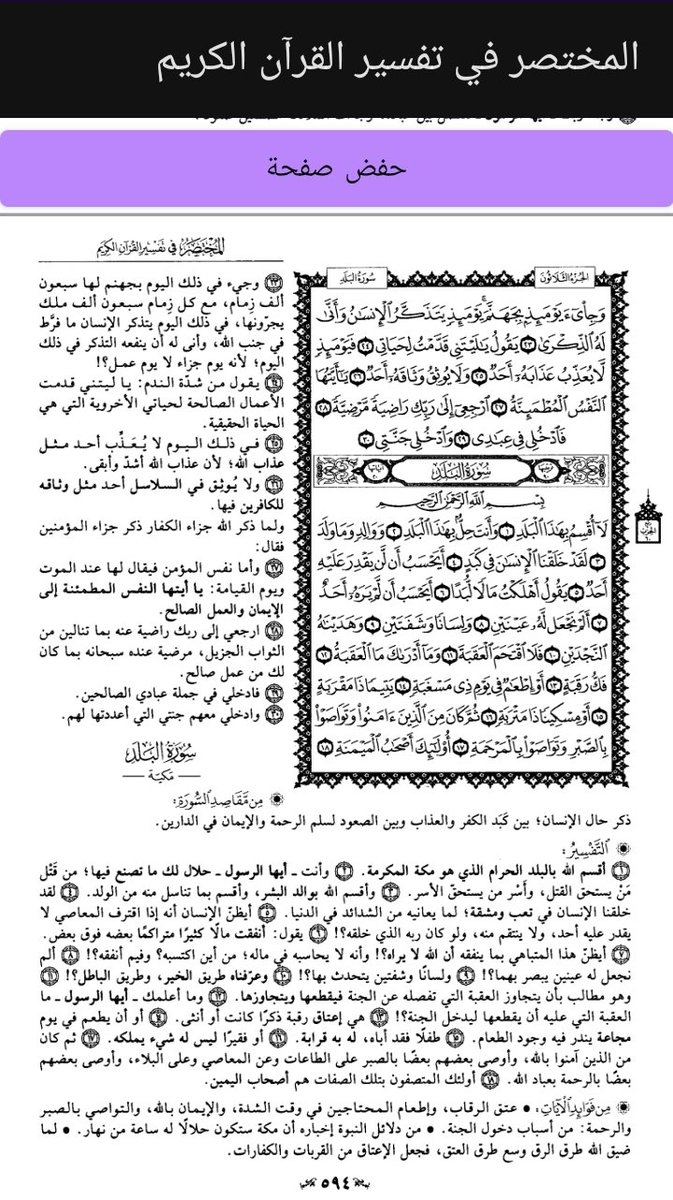 المختصر في تفسير القرآن الكريم
حفض صفحة
المختصر في تفسير القرآن الكريم
الجزء الثلاثون
سورة البلد
وَجِاْىٓءَ يَوْمَئِذِۭ بِجَهَنَّمَۚ يَوْمَئِذٍ يَتَذَكَّرُ ٱلْإِنسَٰنُ وَأَنَّىٰ
لَهُ ٱلذِّكْرَىٰ ٢٣ يَقُولُ يَٰلَيْتَنِى قَدَّمْتُ لِحَيَاتِى ٢٤ فَيَوْمَئِذٍ
لَّا يُعَذِّبُ عَذَابَهُۥٓ أَحَدٌ ٢٥ وَلَا يُوثِقُ وَثَاقَهُۥٓ أَحَدٌ ٢٦ يَٰٓأَيَّتُهَا
ٱلنَّفْسُ ٱلْمُطْمَئِنَّةُ ٢٧ ٱرْجِعِىٓ إِلَىٰ رَبِّكِ رَاضِيَةً مَّرْضِيَّةً ٢٨
فَٱدْخُلِى فِى عِبَٰدِى ٢٩ وَٱدْخُلِى جَنَّتِى ٣٠
سورة البلد
بِسْمِ ٱللَّهِ ٱلرَّحْمَٰنِ ٱلرَّحِيمِ
لَآ أُقْسِمُ بِهَٰذَا ٱلْبَلَدِ ١ وَأَنتَ حِلٌّۢ بِهَٰذَا ٱلْبَلَدِ ٢ وَوَالِدٍ وَمَا وَلَدَ
٣ لَقَدْ خَلَقْنَا ٱلْإِنسَٰنَ فِى كَبَدٍ ٤ أَيَحْسَبُ أَن لَّن يَقْدِرَ عَلَيْهِ
أَحَدٌ ٥ يَقُولُ أَهْلَكْتُ مَالًا لُّبَدًا ٦ أَيَحْسَبُ أَن لَّمْ يَرَهُۥٓ أَحَدٌ
٧ أَلَمْ نَجْعَل لَّهُۥ عَيْنَيْنِ ٨ وَلِسَانًا وَشَفَتَيْنِ ٩ وَهَدَيْنَٰهُ
ٱلنَّجْدَيْنِ ١٠ فَلَا ٱقْتَحَمَ ٱلْعَقَبَةَ ١١ وَمَآ أَدْرَىٰكَ مَا ٱلْعَقَبَةُ ١٢
فَكُّ رَقَبَةٍ ١٣ أَوْ إِطْعَٰمٌ فِى يَوْمٍ ذِى مَسْغَبَةٍ ١٤ يَتِيمًا ذَا مَقْرَبَةٍ
١٥ أَوْ مِسْكِينًا ذَا مَتْرَبَةٍ ١٦ ثُمَّ كَانَ مِنَ ٱلَّذِينَ ءَامَنُوا۟ وَتَوَاصَوْا۟
بِٱلصَّبْرِ وَتَوَاصَوْا۟ بِٱلْمَرْحَمَةِ ١٧ أُو۟لَٰٓئِكَ أَصْحَٰبُ ٱلْمَيْمَنَةِ ١٨
٢٣ وجيء في ذلك اليوم بجهنم لها سبعون
ألف زِمام، مع كل زِمام سبعون ألف ملك
يجرّونها، في ذلك اليوم يتذكر الإنسان ما فرَّط
في جنب الله، وأنى له أن ينفعه التذكر في ذلك
اليوم؛ لأنه يوم جزاء لا يوم عمل؟!
٢٤ يقول من شدّة الندم: يا ليتني قدمت
الأعمال الصالحة لحياتي الأخروية التي هي
الحياة الحقيقية.
٢٥ في ذلك اليوم لا يُعَذِّب أحد مثل
عذاب الله؛ لأن عذاب الله أشدّ وأبقى.
٢٦ ولا يُوثِق في السلاسل أحد مثل وثاقه
للكافرين فيها.
ولما ذكر الله جزاء الكفار ذكر جزاء المؤمنين
فقال:
٢٧ وأما نفس المؤمن فيقال لها عند الموت
ويوم القيامة: يا أيتها النفس المطمئنة إلى
الإيمان والعمل الصالح.
٢٨ ارجعي إلى ربك راضية عنه بما تنالين من
الثواب الجزيل، مرضية عنده سبحانه بما كان
لك من عمل صالح.
٢٩ فادخلي في جملة عبادي الصالحين.
٣٠ وادخلي معهم جنتي التي أعددتها لهم.
سورة البلد
مكية
من مقاصد السورة:
ذكر حال الإنسان؛ بين كَبَد الكفر والعذاب وبين الصعود لسلم الرحمة والإيمان في الدارين.
التفسير:
١ أقسم الله بالبلد الحرام الذي هو مكة المكرمة. ٢ وأنت ـ أيها الرسول ـ حلال لك ما تصنع فيها؛ من قَتْل
مَنْ يستحق القتل، وأَسْر من يستحقّ الأسر. ٣ وأقسم الله بوالد البشر، وأقسم بما تناسل منه من الولد. ٤ لقد
خلقنا الإنسان في تعب ومشقة؛ لما يعانيه من الشدائد في الدنيا. ٥ أيظنّ الإنسان أنه إذا اقترف المعاصي لا
يقدر عليه أحد، ولا ينتقم منه، ولو كان ربه الذي خلقه؟! ٦ يقول: أنفقت مالًا كثيرًا متراكمًا بعضه فوق بعض.
٧ أيظنّ هذا المتباهي بما ينفقه أن الله لا يراه؟! وأنه لا يحاسبه في ماله؛ من أين اكتسبه؟ وفيم أنفقه؟! ٨ ألم
نجعل له عينين يبصر بهما؟! ٩ ولسانًا وشفتين يتحدث بها؟! ١٠ وعرّفناه طريق الخير، وطريق الباطل؟! ١١
وهو مطالب بأن يتجاوز العقبة التي تفصله عن الجنة فيقطعها ويتجاوزها. ١٢ وما أعلمك ـ أيها الرسول ـ ما
العقبة التي عليه أن يقطعها ليدخل الجنة؟! ١٣ هي إعتاق رقبة ذكرًا كانت أو أنثى. ١٤ أو أن يطعم في يوم
مجاعة يندر فيه وجود الطعام. ١٥ طفلًا فقد أباه، له به قرابة. ١٦ أو فقيرًا ليس له شيء يملكه. ١٧ ثم كان
من الذين آمنوا بالله، وأوصى بعضهم بعضًا بالصبر على الطاعات وعن المعاصي وعلى البلاء، وأوصى بعضهم
بعضًا بالرحمة بعباد الله. ١٨ أولئك المتصفون بتلك الصفات هم أصحاب اليمين.
من فوائد الآيات: • عتق الرقاب، وإطعام المحتاجين في وقت الشدة، والإيمان بالله، والتواصي بالصبر
والرحمة: من أسباب دخول الجنة. • من دلائل النبوة إخباره أن مكة ستكون حلالًا له ساعة من نهار. • لما
ضيق الله طرق الرق وسع طرق العتق، فجعل الإعتاق من القربات والكفارات.
٥٩٤